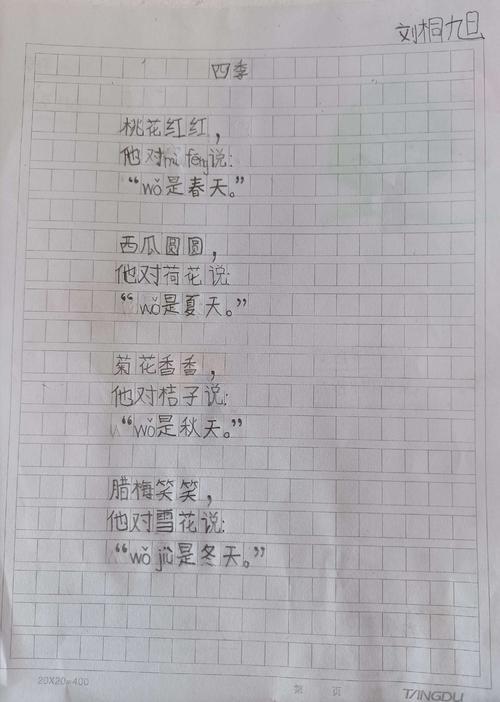 刘桐九旦
四季
桃花红红，
他对mì fēng说：
“wǒ是春天。”
西瓜圆圆，
他对荷花说：
“wǒ是夏天。”
菊花香香，
他对桔子说：
“wǒ是秋天。”
腊梅笑笑，
他对雪花说：
“wǒ jiù是冬天。”
20X20=400
第 页
TANGDU